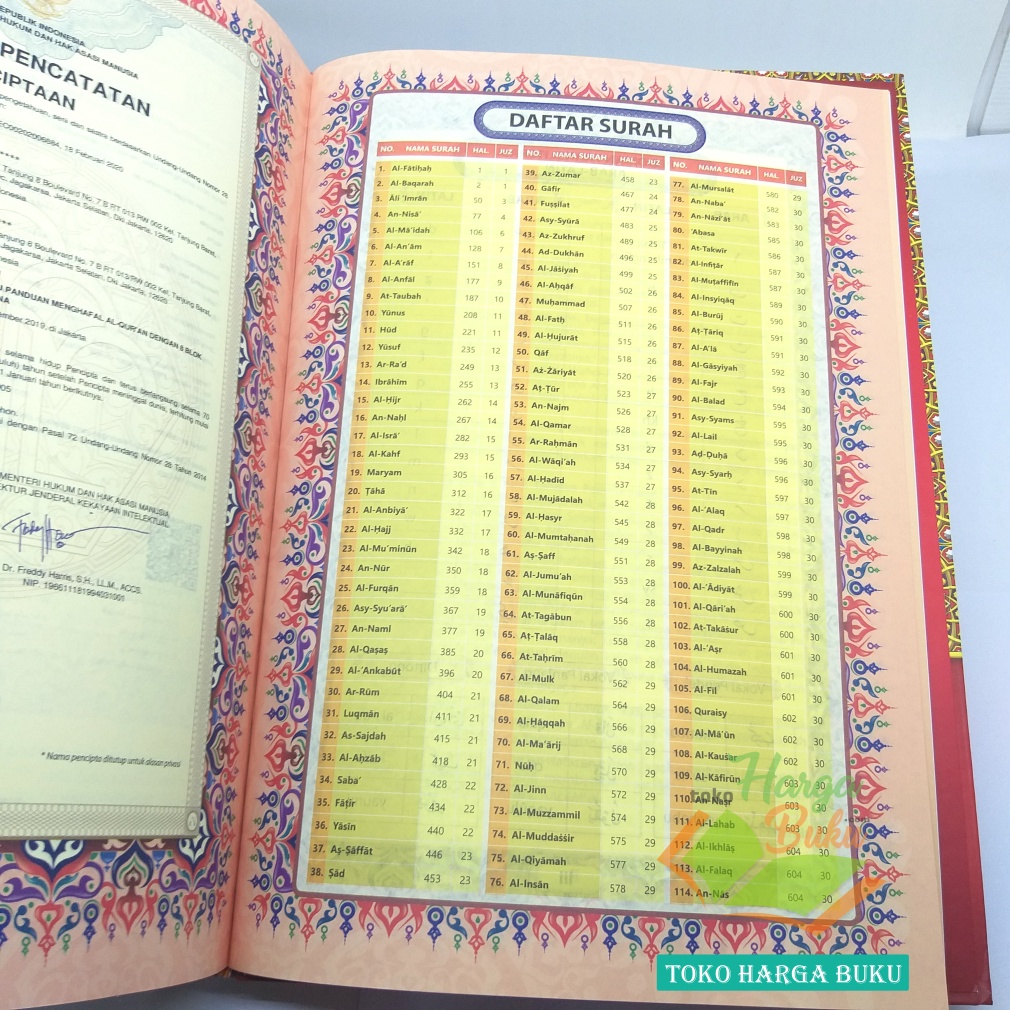 REPUBLIK INDONESIA
HUKUM DAN HAK ASASI MANUSIA
PENCATATAN
CIPTAAN
pengetahuan, seni dan sastra berdasarkan Undang-Undang Nomor 28
EC00202006884, 18 Februari 2020
Tanjung 8 Boulevard No. 7 B RT 013 RW 002 Kel. Tanjung Barat,
Jagakarsa, Jakarta Selatan, Dki Jakarta, 12620
Tanjung 8 Boulevard No. 7 B RT 013/RW 002 Kel. Tanjung Barat,
Jagakarsa, Jakarta Selatan, Dki Jakarta, 12620
PANDUAN MENGHAFAL AL-QUR'AN DENGAN 8 BLOK
2019, di Jakarta
selama hidup Pencipta dan terus berlangsung selama 70
tahun setelah Pencipta meninggal dunia, terhitung mulai
1 Januari tahun berikutnya.
dengan Pasal 72 Undang-Undang Nomor 28 Tahun 2014
MENTERI HUKUM DAN HAK ASASI MANUSIA
DIREKTUR JENDERAL KEKAYAAN INTELEKTUAL
Dr. Freddy Harris, S.H., LL.M., ACCS.
NIP. 196611181994031001
* Nama pencipta ditutup untuk alasan privasi
DAFTAR SURAH
NO. NAMA SURAH HAL. JUZ
1. Al-Fātiḥaḥ 1 1
2. Al-Baqarah 2 1
3. Āli 'Imrān 50 3
4. An-Nisā' 77 4
5. Al-Mā'idah 106 6
6. Al-An'ām 128 7
7. Al-A'rāf 151 8
8. Al-Anfāl 177 9
9. At-Taubah 187 10
10. Yūnus 208 11
11. Hūd 221 11
12. Yūsuf 235 12
13. Ar-Ra'd 249 13
14. Ibrāhīm 255 13
15. Al-Ḥijr 262 14
16. An-Naḥl 267 14
17. Al-Isrā' 282 15
18. Al-Kahf 293 15
19. Maryam 305 16
20. Ṭāhā 312 16
21. Al-Anbiyā' 322 17
22. Al-Ḥajj 332 17
23. Al-Mu'minūn 342 18
24. An-Nūr 350 18
25. Al-Furqān 359 18
26. Asy-Syu'arā' 367 19
27. An-Naml 377 19
28. Al-Qaṣaṣ 385 20
29. Al-'Ankabūt 396 20
30. Ar-Rūm 404 21
31. Luqmān 411 21
32. As-Sajdah 415 21
33. Al-Aḥzāb 418 21
34. Saba' 428 22
35. Fāṭir 434 22
36. Yāsīn 440 22
37. Aṣ-Ṣāffāt 446 23
38. Ṣād 453 23
NO. NAMA SURAH HAL. JUZ
39. Az-Zumar 458 23
40. Gāfir 467 24
41. Fuṣṣilat 477 24
42. Asy-Syūrā 483 25
43. Az-Zukhruf 489 25
44. Ad-Dukhān 496 25
45. Al-Jāṡiyah 499 25
46. Al-Aḥqāf 502 26
47. Muḥammad 507 26
48. Al-Fatḥ 511 26
49. Al-Ḥujurāt 515 26
50. Qāf 518 26
51. Aż-Żāriyāt 520 26
52. Aṭ-Ṭūr 523 27
53. An-Najm 526 27
54. Al-Qamar 528 27
55. Ar-Raḥmān 531 27
56. Al-Wāqi'ah 534 27
57. Al-Ḥadīd 537 27
58. Al-Mujādalah 542 28
59. Al-Ḥasyr 545 28
60. Al-Mumtaḥanah 549 28
61. Aṣ-Ṣaff 551 28
62. Al-Jumu'ah 553 28
63. Al-Munāfiqūn 554 28
64. At-Tagābun 556 28
65. Aṭ-Ṭalāq 558 28
66. At-Taḥrīm 560 28
67. Al-Mulk 562 29
68. Al-Qalam 564 29
69. Al-Ḥāqqah 566 29
70. Al-Ma'ārij 568 29
71. Nūḥ 570 29
72. Al-Jinn 572 29
73. Al-Muzzammil 574 29
74. Al-Muddaṡṡir 575 29
75. Al-Qiyāmah 577 29
76. Al-Insān 578 29
NO. NAMA SURAH HAL. JUZ
77. Al-Mursalāt 580 29
78. An-Naba' 582 30
79. An-Nāzi'āt 583 30
80. 'Abasa 585 30
81. At-Takwīr 586 30
82. Al-Infiṭār 587 30
83. Al-Muṭaffifīn 587 30
84. Al-Insyiqāq 589 30
85. Al-Burūj 590 30
86. Aṭ-Ṭāriq 591 30
87. Al-A'lā 591 30
88. Al-Gāsyiyah 592 30
89. Al-Fajr 593 30
90. Al-Balad 594 30
91. Asy-Syams 595 30
92. Al-Lail 595 30
93. Aḍ-Ḍuḥā 596 30
94. Asy-Syarḥ 596 30
95. At-Tīn 597 30
96. Al-'Alaq 597 30
97. Al-Qadr 598 30
98. Al-Bayyinah 598 30
99. Az-Zalzalah 599 30
100. Al-'Ādiyāt 599 30
101. Al-Qāri'ah 600 30
102. At-Takāṡur 600 30
103. Al-'Aṣr 601 30
104. Al-Humazah 601 30
105. Al-Fīl 601 30
106. Quraisy 602 30
107. Al-Mā'ūn 602 30
108. Al-Kauṡar 602 30
109. Al-Kāfirūn 603 30
110. An-Naṣr 603 30
111. Al-Lahab 603 30
112. Al-Ikhlāṣ 604 30
113. Al-Falaq 604 30
114. An-Nās 604 30
toko
Harga
Buku
.com
TOKO HARGA BUKU